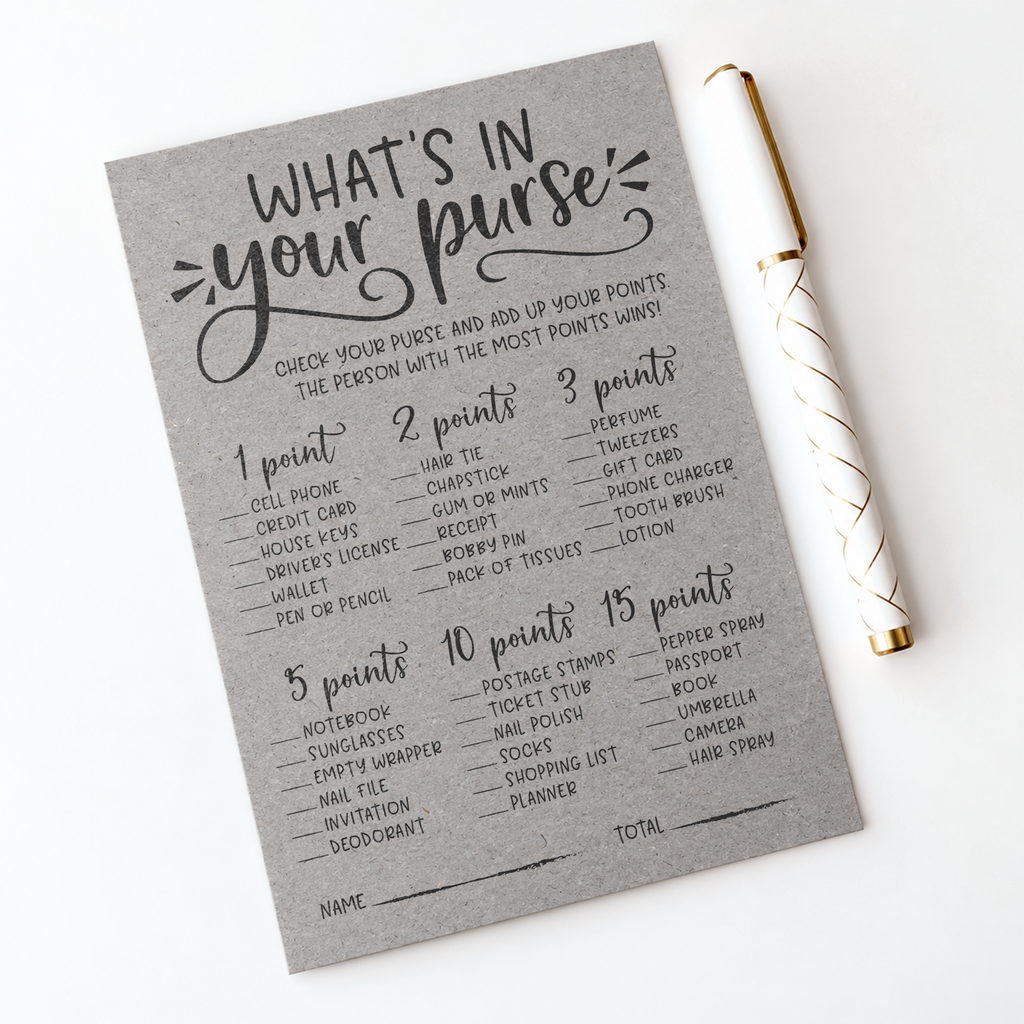 WHAT'S IN
your purse
CHECK YOUR PURSE AND ADD UP YOUR POINTS.
THE PERSON WITH THE MOST POINTS WINS!
1 point
___CELL PHONE
___CREDIT CARD
___HOUSE KEYS
___DRIVER'S LICENSE
___WALLET
___PEN OR PENCIL
2 points
___HAIR TIE
___CHAPSTICK
___GUM OR MINTS
___RECEIPT
___BOBBY PIN
___PACK OF TISSUES
3 points
___PERFUME
___TWEEZERS
___GIFT CARD
___PHONE CHARGER
___TOOTH BRUSH
___LOTION
5 points
___NOTEBOOK
___SUNGLASSES
___EMPTY WRAPPER
___NAIL FILE
___INVITATION
___DEODORANT
10 points
___POSTAGE STAMPS
___TICKET STUB
___NAIL POLISH
___SOCKS
___SHOPPING LIST
___PLANNER
15 points
___PEPPER SPRAY
___PASSPORT
___BOOK
___UMBRELLA
___CAMERA
___HAIR SPRAY
NAME ___ TOTAL ___